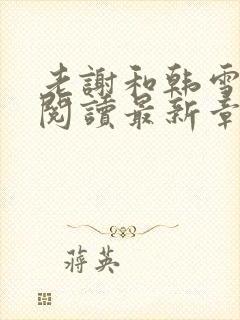 老謝和韩雪
閱讀最新章
蔣英